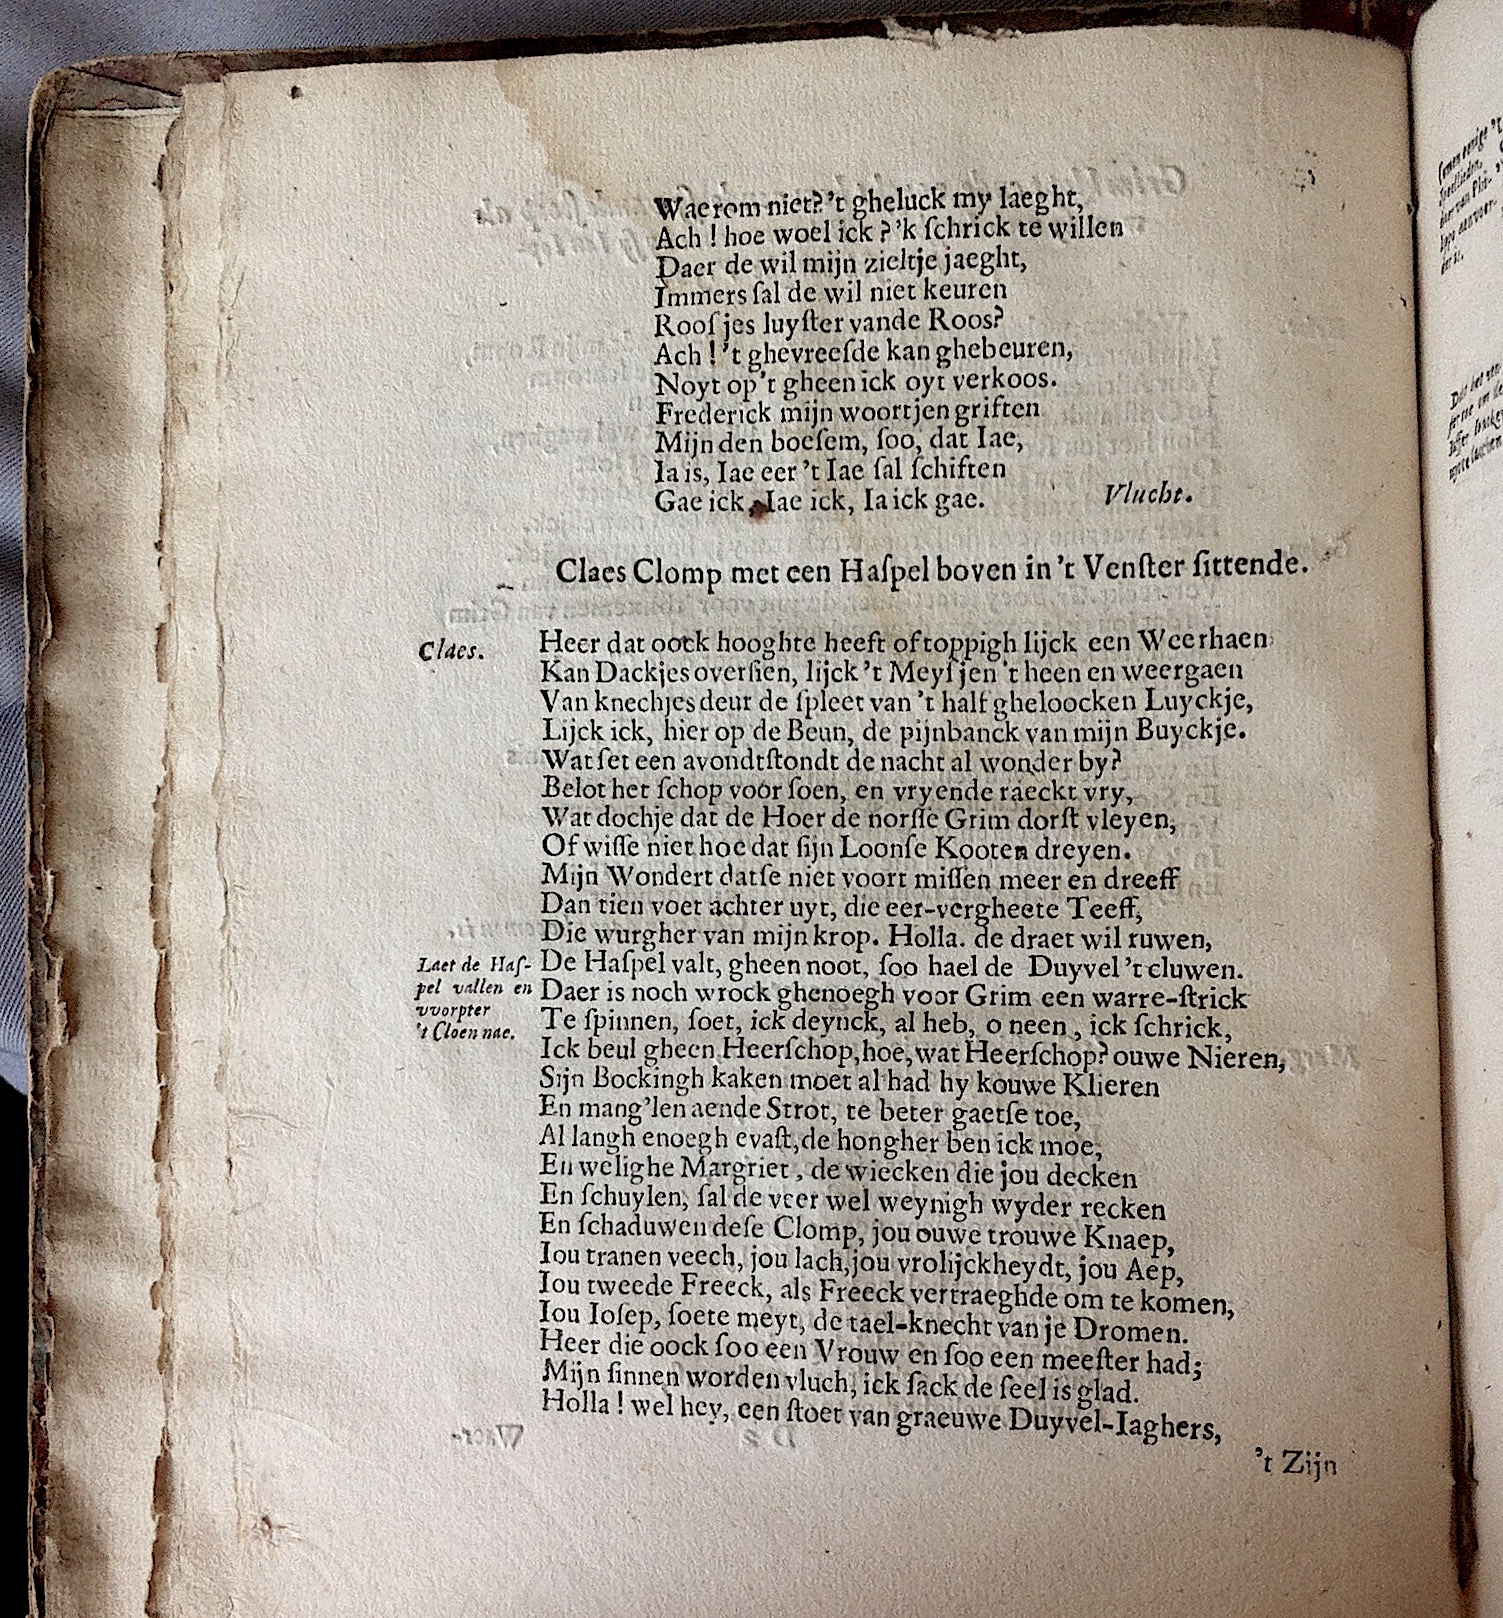 Waerom niet? 't gheluck my laeght,
Ach! hoe woel ick? 'k ſchrick te willen
Daer de wil mijn zieltje jaeght,
Immers ſal de wil niet keuren
Rooſjes luyſter vande Roos?
Ach! 't ghevreeſde kan ghebeuren,
Noyt op 't gheen ick oyt verkoos.
Frederick mijn woortjen griften
Mijn den boeſem, ſoo, dat Iae,
Ia is, Iae eer 't Iae ſal ſchiften
Gae ick, Iae ick, Ia ick gae. Vlucht.
Claes Clomp met een Haſpel boven in 't Venſter ſittende.
Claes. Heer dat oock hooghte heeft of toppigh lijck een Weerhaen
Kan Dackjes overſien, lijck 't Meyſjen 't heen en weergaen
Van knechjes deur de ſpleet van 't half gheloocken Luyckje,
Lijck ick, hier op de Beun, de pijnbanck van mijn Buyckje.
Wat ſet een avondtſtondt de nacht al wonder by?
Belot het ſchop voor ſoen, en vryende raeckt vry,
Wat dochje dat de Hoer de norſſe Grim dorſt vleyen,
Of wiſſe niet hoe dat ſijn Loonſe Kooten dreyen.
Mijn Wondert datſe niet voort miſſen meer en dreeff
Dan tien voet achter uyt, die eer-vergheete Teeff,
Die wurgher van mijn krop. Holla. de draet wil ruwen,
Laet de Haſ- De Haſpel valt, gheen noot, ſoo hael de Duyvel 't cluwen.
pel vallen en Daer is noch wrock ghenoegh voor Grim een warre-ſtrick
vvorpter Te ſpinnen, ſoet, ick deynck, al heb, o neen, ick ſchrick,
't Cloen nae. Ick beul gheen Heerſchop, hoe, wat Heerſchop? ouwe Nieren,
Sijn Bockingh kaken moet al had hy kouwe Klieren
En mang'len aende Strot, te beter gaetſe toe,
Al langh enoegh evaſt, de hongher ben ick moe,
En welighe Margriet, de wiecken die jou decken
En ſchuylen, ſal de veer wel weynigh wyder recken
En ſchaduwen deſe Clomp, jou ouwe trouwe Knaep,
Iou tranen veech, jou lach, jou vrolijckheydt, jou Aep,
Iou tweede Freeck, als Freeck vertraeghde om te komen,
Iou Ioſep, ſoete meyt, de tael-knecht van je Dromen.
Heer die oock ſoo een Vrouw en ſoo een meeſter had;
Mijn ſinnen worden vluch, ick ſack de ſeel is glad.
Holla! wel hey, een ſtoet van graeuwe Duyvel-Iaghers,
't Zijn